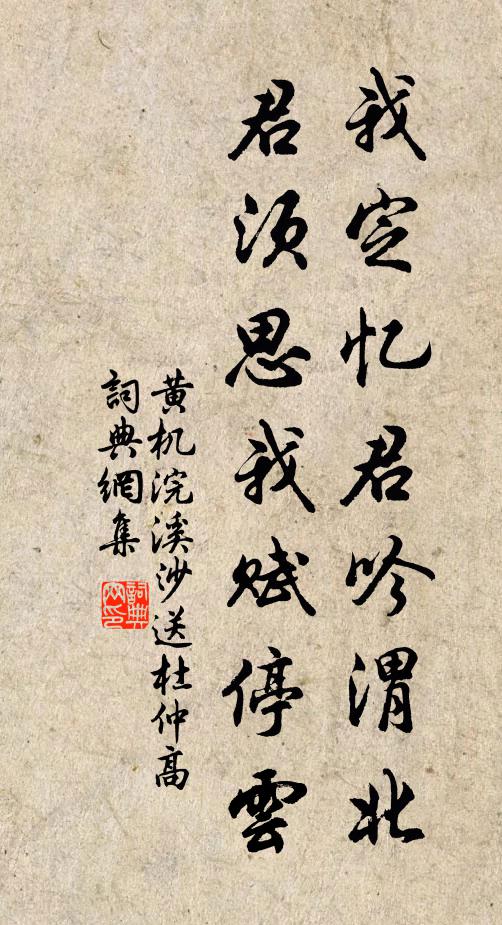 我定忆君吟渭北
君须思我赋停雲
黄机浣溪沙送杜仲高
詞典網集
詞典
网印